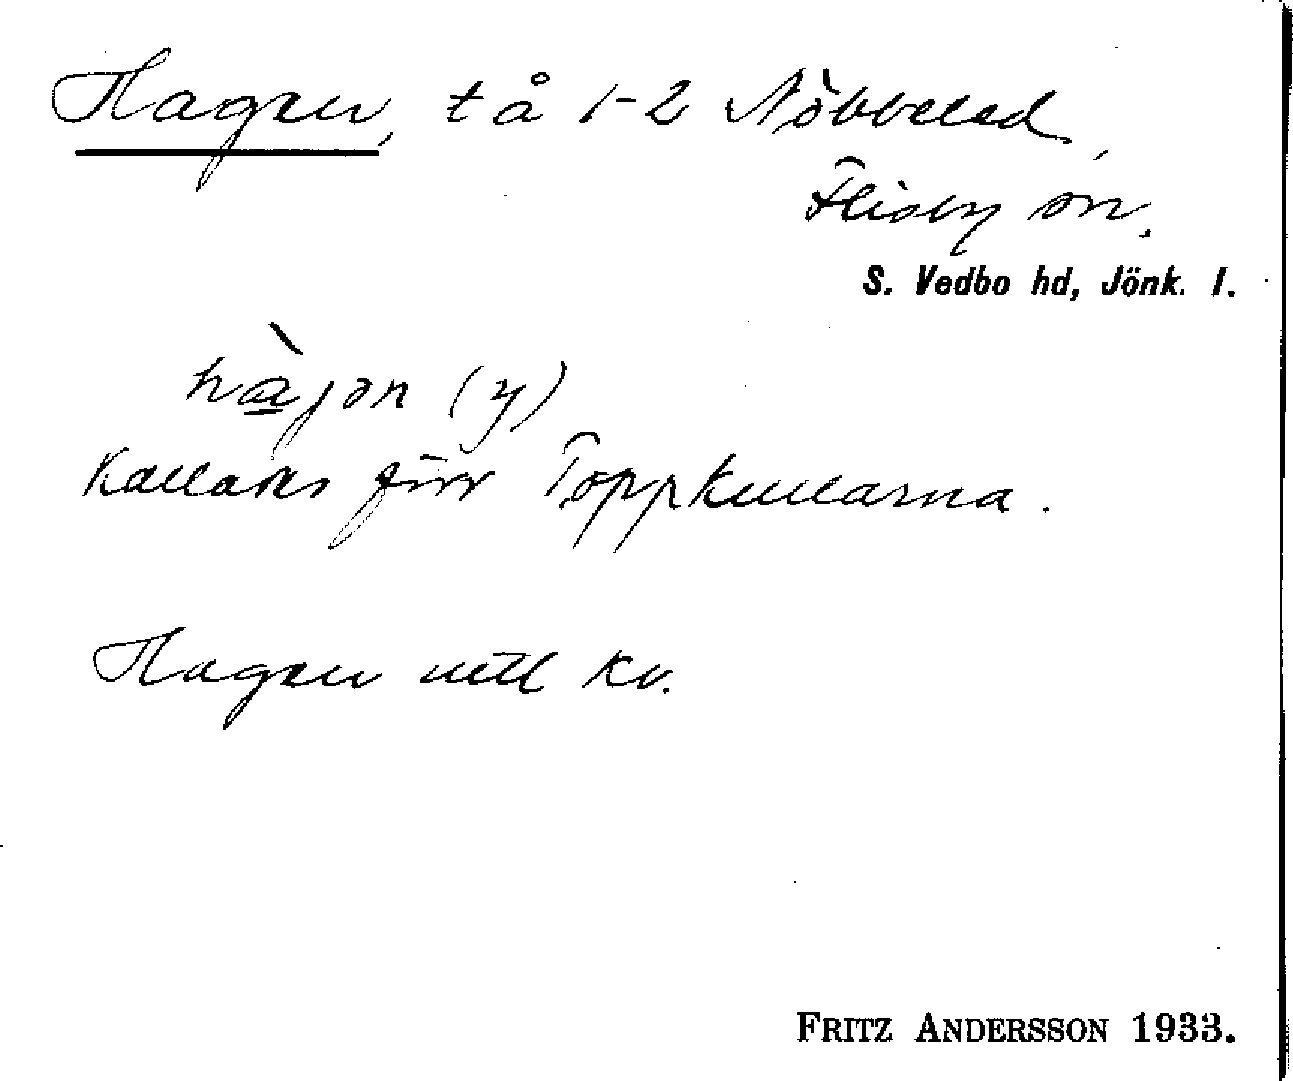 Hagen, t å 1-2 Nöbbeled,
Flisby sn.
S. Vedbo hd, Jönk. l.
hàjən (y)
Kallades förr Toppkullarna.
Hagen uttl kv.
FRITZ ANDERSSON 1933.